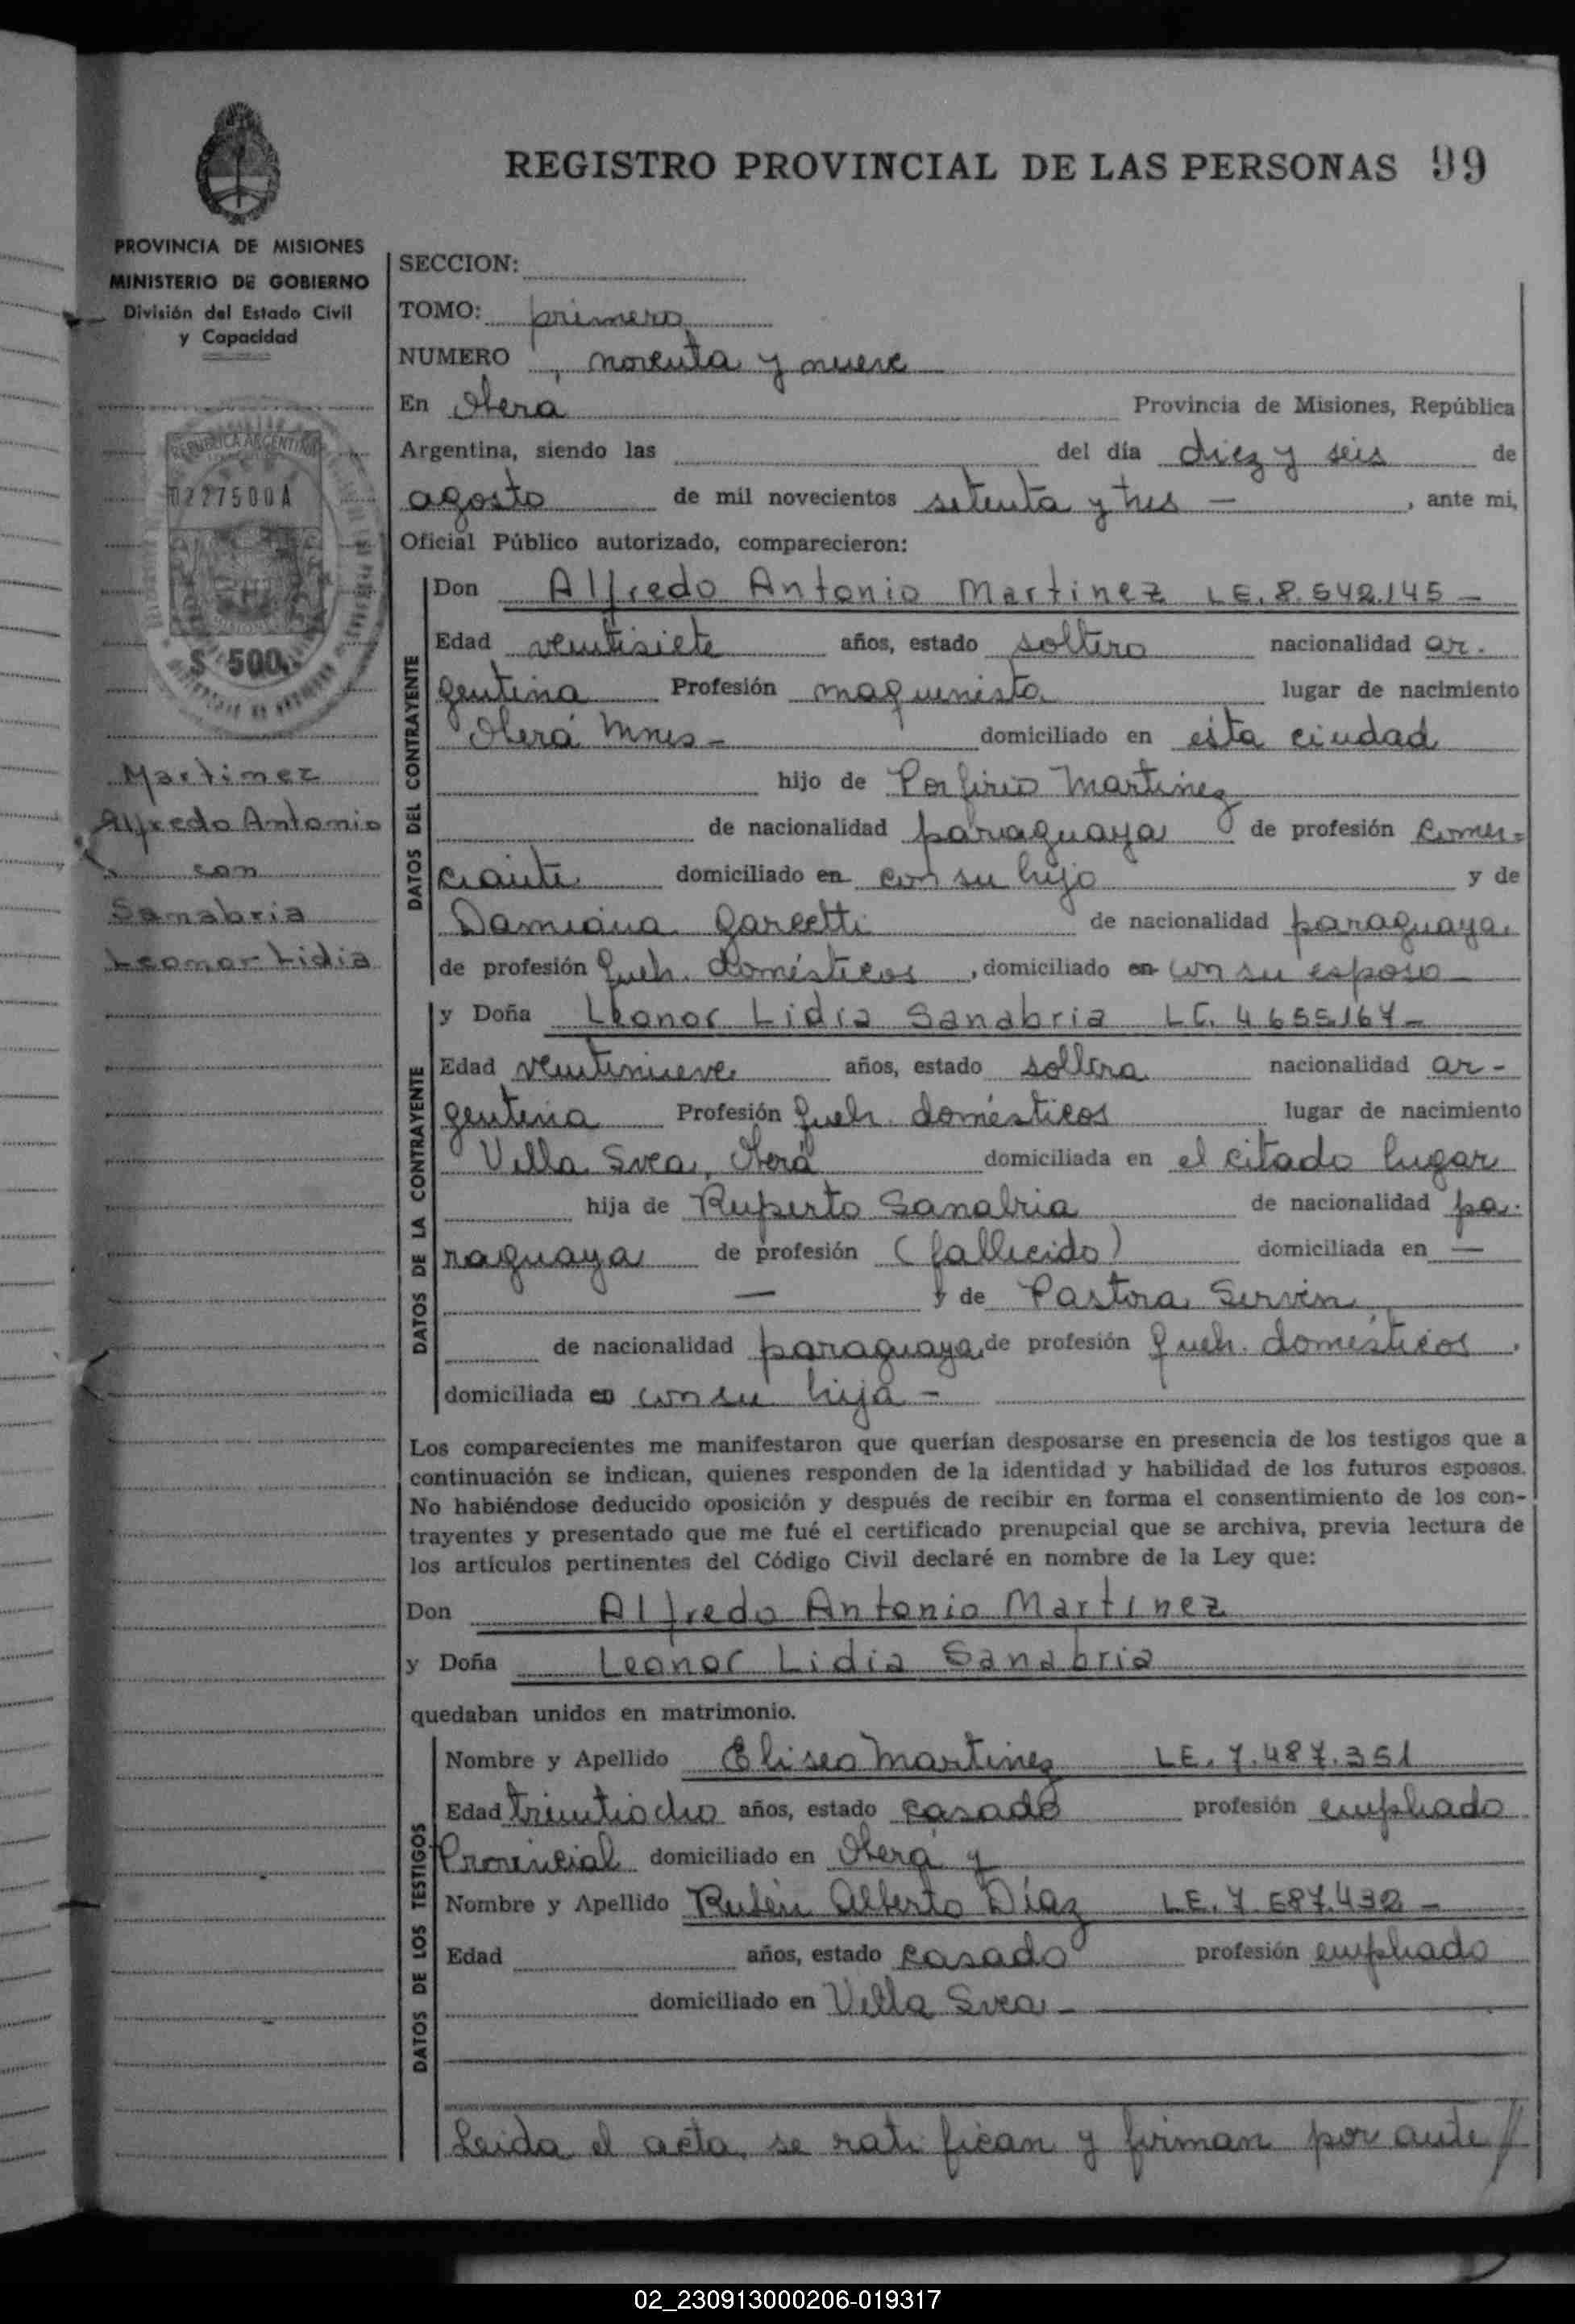 REGISTRO PROVINCIAL DE LAS PERSONAS 99
PROVINCIA DE MISIONES
MINISTERIO DE GOBIERNO
División del Estado Civil
y Capacidad
REPUBLICA ARGENTINA
0227500A
$ 500
Martinez
Alfredo Antonio
con
Sanabria
Leonor Lidia
SECCION:
TOMO: primero
NUMERO noventa y nueve
En Oberá Provincia de Misiones, República
Argentina, siendo las del día diez y seis de
agosto de mil novecientos setenta y tres — , ante mi,
Oficial Público autorizado, comparecieron:
DATOS DEL CONTRAYENTE
Don Alfredo Antonio Martinez LE. 8.542.145 —
Edad veintisiete años, estado soltero nacionalidad ar-
gentina Profesión maquinista lugar de nacimiento
Oberá Mnes — domiciliado en esta ciudad
hijo de Porfirio Martinez
de nacionalidad paraguaya de profesión comer-
ciante domiciliado en con su hijo y de
Damiana Garcetti de nacionalidad paraguaya
de profesión queh. domésticos , domiciliado en con su esposo
DATOS DE LA CONTRAYENTE
y Doña Leonor Lidia Sanabria LC. 4655.167 —
Edad veintinueve años, estado soltera nacionalidad ar-
gentina Profesión queh. domésticos lugar de nacimiento
Villa Svea, Oberá domiciliada en el citado lugar
hija de Ruperto Sanabria de nacionalidad pa-
raguaya de profesión (fallecido) domiciliada en —
— y de Pastora Servin
de nacionalidad paraguaya de profesión queh. domésticos .
domiciliada en con su hija —
Los comparecientes me manifestaron que querían desposarse en presencia de los testigos que a
continuación se indican, quienes responden de la identidad y habilidad de los futuros esposos.
No habiéndose deducido oposición y después de recibir en forma el consentimiento de los con-
trayentes y presentado que me fué el certificado prenupcial que se archiva, previa lectura de
los artículos pertinentes del Código Civil declaré en nombre de la Ley que:
Don Alfredo Antonio Martinez
y Doña Leonor Lidia Sanabria
quedaban unidos en matrimonio.
DATOS DE LOS TESTIGOS
Nombre y Apellido Eliseo Martinez LE. 7.487.351
Edad treintiocho años, estado casado profesión empleado
Provincial domiciliado en Oberá y
Nombre y Apellido Rubén Alberto Díaz LE. 7.687.432 —
Edad años, estado casado profesión empleado
domiciliado en Villa Svea —
Leida el acta, se ratifican y firman por ante //
02_230913000206-019317